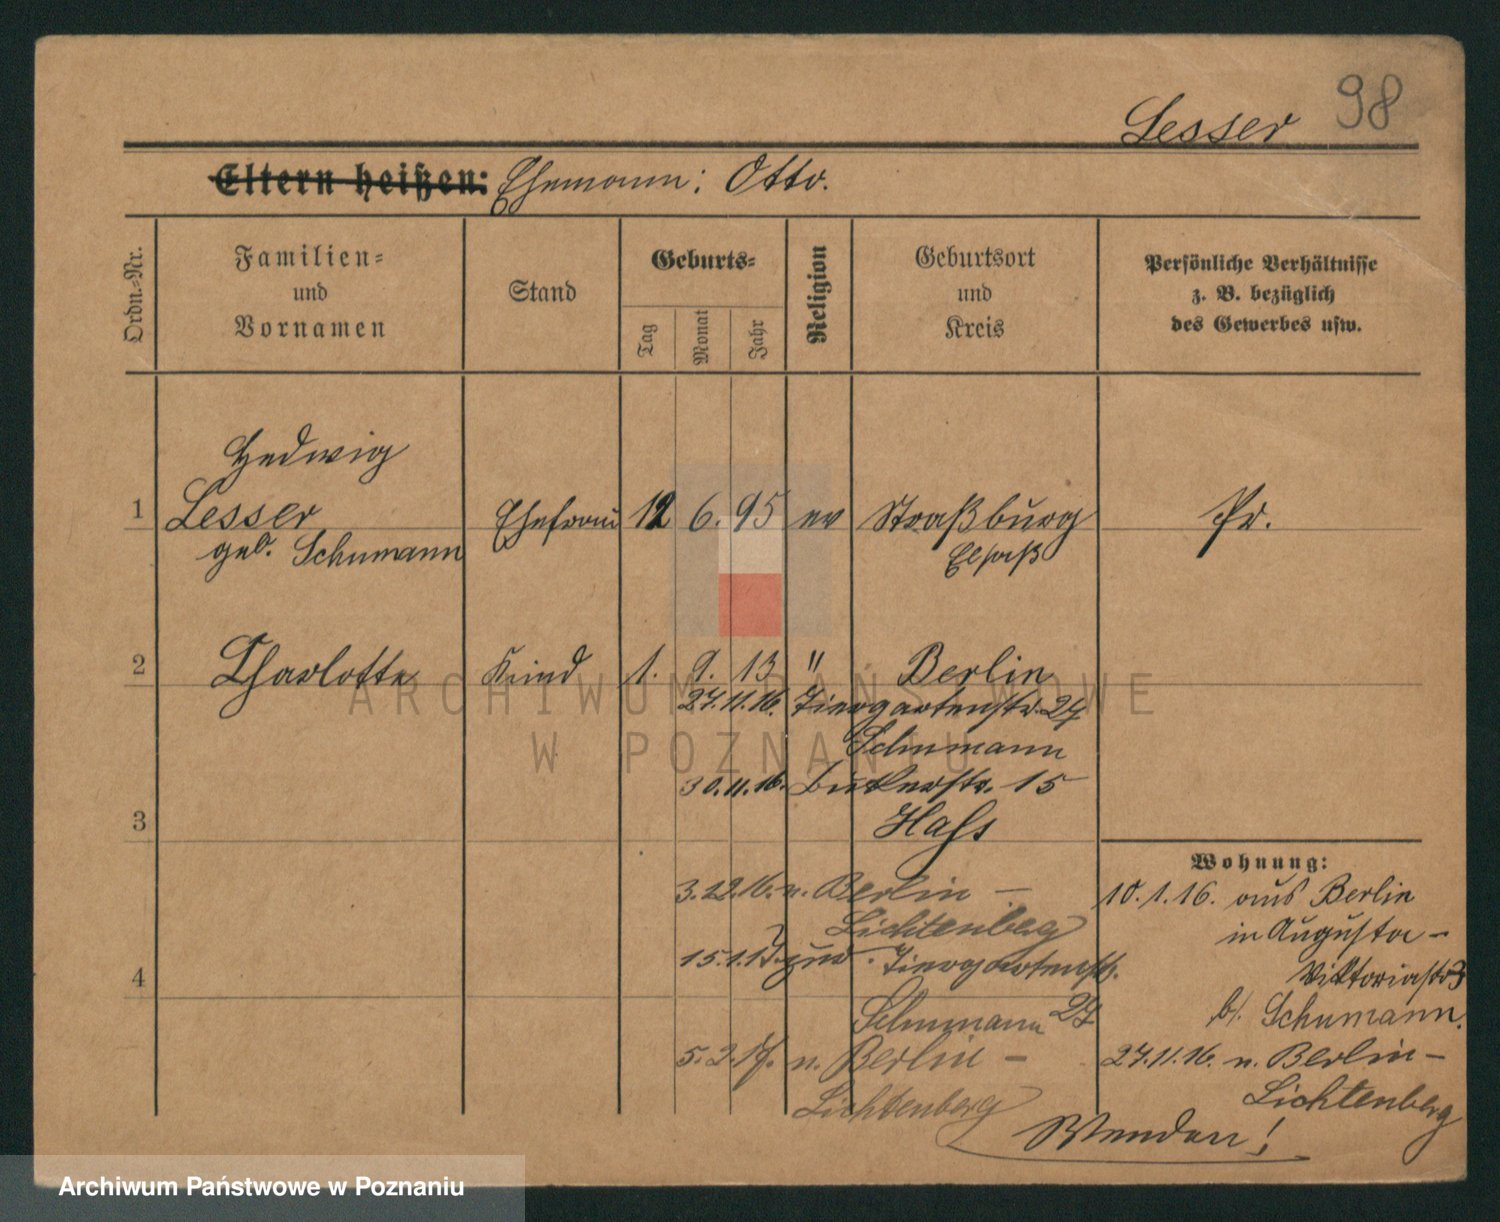 98
Lesser
Eltern heißen: Ehemann: Otto.
Ordn.-Nr.
Familien-
und
Vornamen
Stand
Geburts-
Tag
Monat
Jahr
Religion
Geburtsort
und
Kreis
Persönliche Verhältnisse
z. B. bezüglich
des Gewerbes usw.
Hedwig
1 Lesser Ehefrau 12 6. 95 ev Straßburg Pr.
geb. Schumann Elsaß
2 Charlotte Kind 1. 9. 13 " Berlin
27.11.16. Tiergartenstr. 27
Schumann
30.11.16. 15
3
Wohnung:
3.12.16. n. Berlin –
Lichtenberg
15.1.17. zur. Tiergartenstr.
4
Schumann 27
5.2.17. n. Berlin –
Lichtenberg
10.1.16. aus Berlin
in Augusta-
Viktoriastr 3
b/. Schumann.
27.11.16. n. Berlin –
Lichtenberg
Wenden!
ARCHIWUM PAŃSTWOWE
W POZNANIU
Archiwum Państwowe w Poznaniu